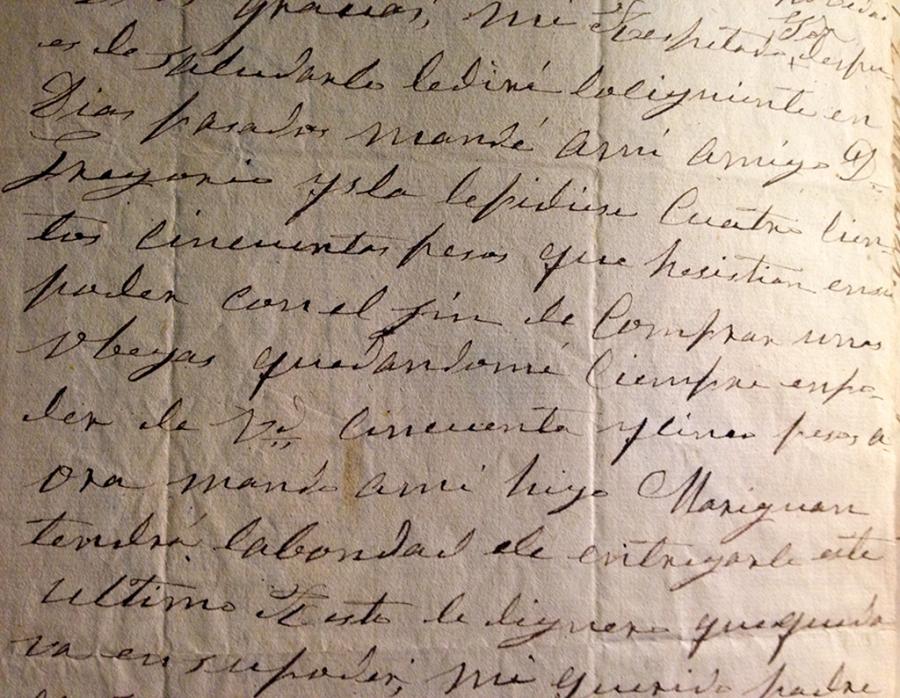 gracias, mi Respetado, despu
es de saludarlo lediré losiguiente en
Dias pasados mandé ami amigo D.
Gregorio ysla lepidiese Cuatro Cien
tos cincuentas pesos que hesistian ensu
poder con el fin de Comprar unas
obegas quedandomé Ciempre enpo
der de Vd. Cincuenta ycinco pesos a
ora mando ami higo Mariguan
tendrá labondad de entregarle este
ultimo Resto de dignero quequeda
va ensupoder, mi querido padre